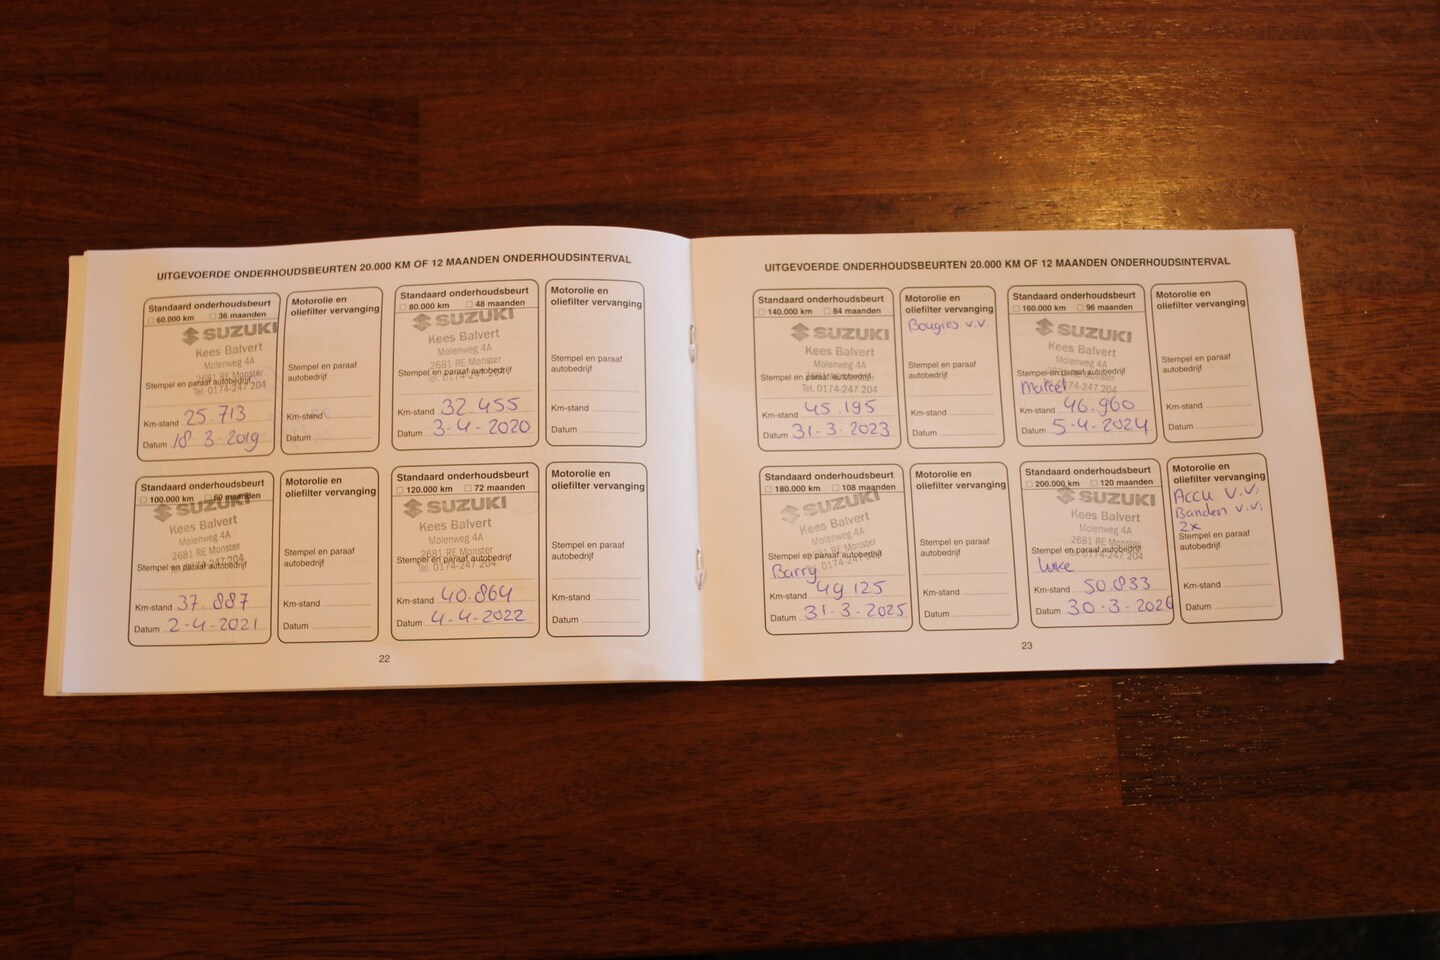 UITGEVOERDE ONDERHOUDSBEURTEN 20.000 KM OF 12 MAANDEN ONDERHOUDSINTERVAL
Standaard onderhoudsbeurt
60.000 km 36 maanden
SUZUKI
Kees Balvert
Molenweg 4A
2681 RE Monster
Stempel en paraaf autobedrijf
Tel. 0174-247 204
Km-stand 25.713
Datum 18-3-2019
Motorolie en
oliefilter vervanging
Stempel en paraaf
autobedrijf
Km-stand
Datum
Standaard onderhoudsbeurt
80.000 km 48 maanden
SUZUKI
Kees Balvert
Molenweg 4A
2681 RE Monster
Stempel en paraaf autobedrijf
Tel. 0174-247 204
Km-stand 32.455
Datum 3-4-2020
Motorolie en
oliefilter vervanging
Stempel en paraaf
autobedrijf
Km-stand
Datum
Standaard onderhoudsbeurt
100.000 km 60 maanden
SUZUKI
Kees Balvert
Molenweg 4A
2681 RE Monster
Stempel en paraaf autobedrijf
Tel. 0174-247 204
Km-stand 37.887
Datum 2-4-2021
Motorolie en
oliefilter vervanging
Stempel en paraaf
autobedrijf
Km-stand
Datum
Standaard onderhoudsbeurt
120.000 km 72 maanden
SUZUKI
Kees Balvert
Molenweg 4A
2681 RE Monster
Stempel en paraaf autobedrijf
Tel. 0174-247 204
Km-stand 40.864
Datum 4-4-2022
Motorolie en
oliefilter vervanging
Stempel en paraaf
autobedrijf
Km-stand
Datum
22
UITGEVOERDE ONDERHOUDSBEURTEN 20.000 KM OF 12 MAANDEN ONDERHOUDSINTERVAL
Standaard onderhoudsbeurt
140.000 km 84 maanden
SUZUKI
Kees Balvert
Molenweg 4A
2681 RE Monster
Stempel en paraaf autobedrijf
Tel. 0174-247 204
Km-stand 45.195
Datum 31-3-2023
Motorolie en
oliefilter vervanging
Bougies v.v.
Stempel en paraaf
autobedrijf
Km-stand
Datum
Standaard onderhoudsbeurt
160.000 km 96 maanden
SUZUKI
Kees Balvert
Molenweg 4A
2681 RE Monster
Stempel en paraaf autobedrijf
Tel. 0174-247 204
Marcel
Km-stand 46.960
Datum 5-4-2024
Motorolie en
oliefilter vervanging
Stempel en paraaf
autobedrijf
Km-stand
Datum
Standaard onderhoudsbeurt
180.000 km 108 maanden
SUZUKI
Kees Balvert
Molenweg 4A
2681 RE Monster
Stempel en paraaf autobedrijf
Tel. 0174-247 204
Barry
Km-stand 49.125
Datum 31-3-2025
Motorolie en
oliefilter vervanging
Stempel en paraaf
autobedrijf
Km-stand
Datum
Standaard onderhoudsbeurt
200.000 km 120 maanden
SUZUKI
Kees Balvert
Molenweg 4A
2681 RE Monster
Stempel en paraaf autobedrijf
Tel. 0174-247 204
Luke
Km-stand 50.833
Datum 30-3-2026
Motorolie en
oliefilter vervanging
Accu v.v.
Banden v.v.
2x
Stempel en paraaf
autobedrijf
Km-stand
Datum
23